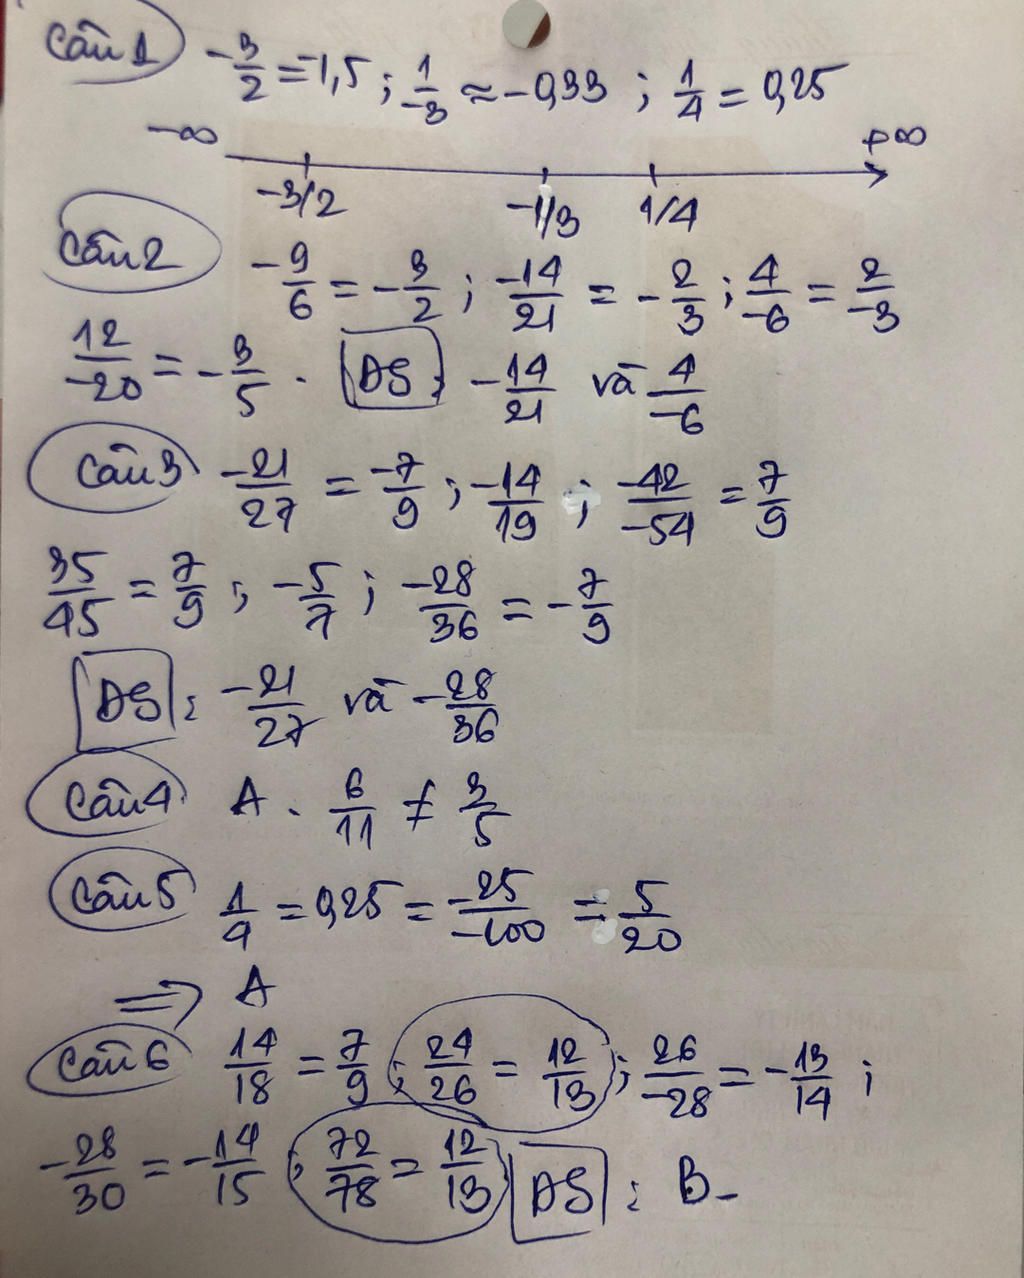 Câu 1 -3/2 = -1,5 ; 1/-3 ≈ -0,33 ; 1/4 = 0,25
-∞ +∞
-3/2 -1/3 1/4
Câu 2 -9/6 = -3/2 ; -14/21 = -2/3 ; 4/-6 = 2/-3
12/-20 = -3/5 . ĐS : -14/21 và 4/-6
Câu 3 -21/27 = -7/9 ; -14/19 ; -42/-54 = 7/9
35/45 = 7/9 ; -5/7 ; -28/36 = -7/9
ĐS : -21/27 và -28/36
Câu 4 A . 6/11 ≠ 3/5
Câu 5 1/4 = 0,25 = -25/-100 = 5/20
⇒ A
Câu 6 14/18 = 7/9 ; 24/26 = 12/13 ; 26/-28 = -13/14 ;
-28/30 = -14/15 ; 72/78 = 12/13 ĐS : B-